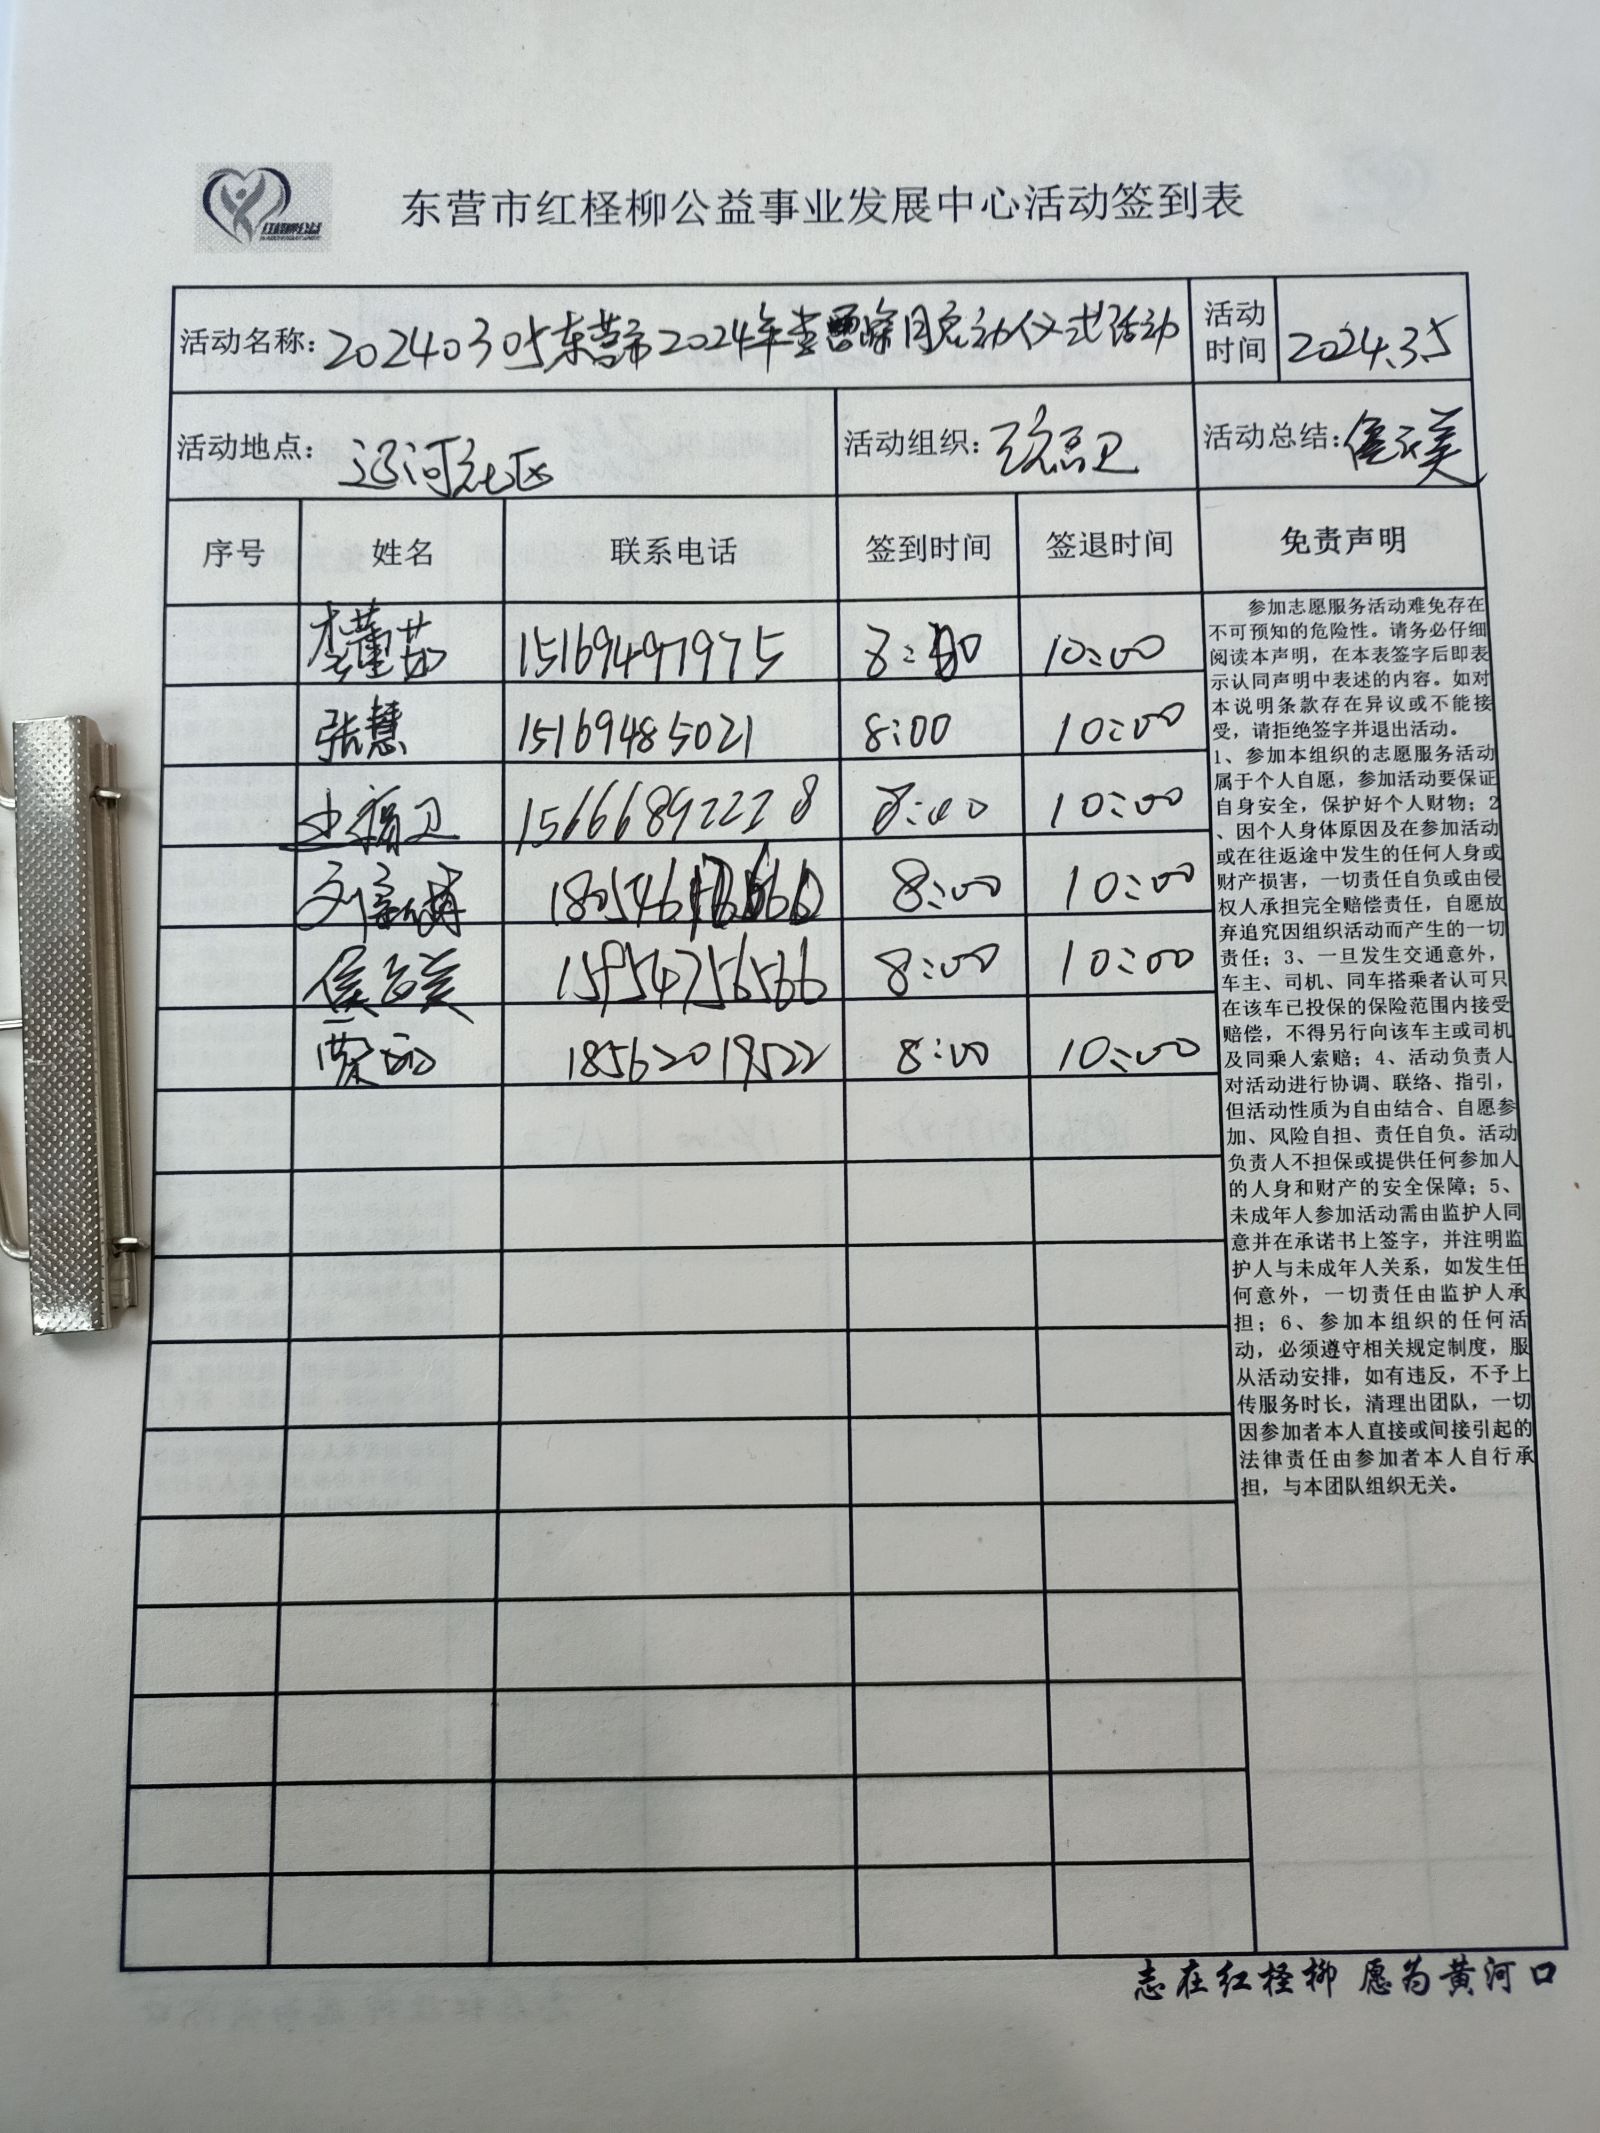 东营市红柽柳公益事业发展中心活动签到表
活动名称：20240305东营市2024年学雷锋月启动仪式活动
活动时间
2024.3.5
活动地点：辽河社区
活动组织：
活动总结：
序号 姓名 联系电话 签到时间 签退时间 免责声明
15169497975 8:00 10:00
张慧 15169485021 8:00 10:00
15666892228 8:00 10:00
8:00 10:00
15954756566 8:00 10:00
18562019522 8:00 10:00
参加志愿服务活动难免存在
不可预知的危险性。请务必仔细
阅读本声明，在本表签字后即表
示认同声明中表述的内容。如对
本说明条款存在异议或不能接
受，请拒绝签字并退出活动。
1、参加本组织的志愿服务活动
属于个人自愿，参加活动要保证
自身安全，保护好个人财物；2
、因个人身体原因及在参加活动
或在往返途中发生的任何人身或
财产损害，一切责任自负或由侵
权人承担完全赔偿责任，自愿放
弃追究因组织活动而产生的一切
责任；3、一旦发生交通意外，
车主、司机、同车搭乘者认可只
在该车已投保的保险范围内接受
赔偿，不得另行向该车主或司机
及同乘人索赔；4、活动负责人
对活动进行协调、联络、指引，
但活动性质为自由结合、自愿参
加、风险自担、责任自负。活动
负责人不担保或提供任何参加人
的人身和财产的安全保障；5、
未成年人参加活动需由监护人同
意并在承诺书上签字，并注明监
护人与未成年人关系，如发生任
何意外，一切责任由监护人承
担；6、参加本组织的任何活
动，必须遵守相关规定制度，服
从活动安排，如有违反，不予上
传服务时长，清理出团队，一切
因参加者本人直接或间接引起的
法律责任由参加者本人自行承
担，与本团队组织无关。
志在红柽柳 愿为黄河口